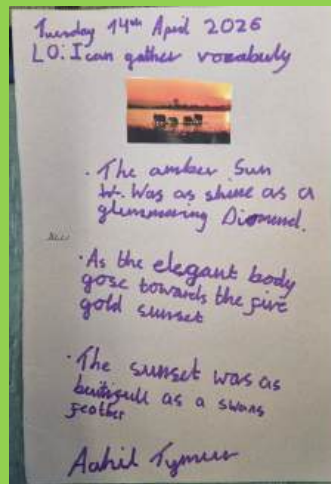 Tuesday 14th April 2026
LO: I can gather vocabuly
. The amber Sun
Was as shine as a
glimmering Diomend.
. As the elegant body
gose towards the fire
gold sunset
. The sunset was as
beutifull as a swans
feather
Aahil Tymur